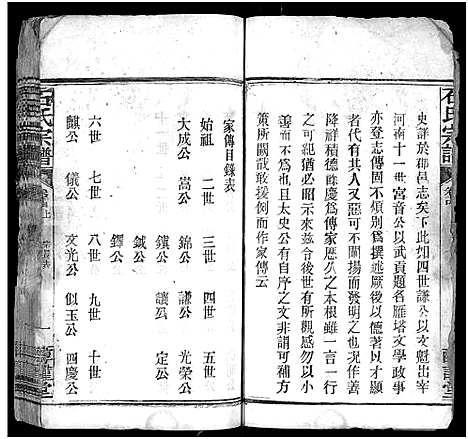 石氏宗譜
史詳於郡邑志矣下此如四世謙公以文魁出宰
河南十一世宮音公以武貢題名雁塔文學政事
亦登志傳固不煩別為撰述厥後以德著以才顯
者代有其人又惡可不闡揚而發明之也況作善
降祥積德餘慶為傳家悠久之本根雖一言一行
之可紀猶必昭示來茲令後世有所觀感勿以小
善而不為也且太史公有自序之文非謂可傳
第所闕哉敢援例而作家傳云
家傳目錄表
始祖 二世 三世 四世 五世
大成公 嵩公 錦公 謙公 光榮公
鎮公 讓公 定公
鉞公
鐸公
六世 七世 八世 九世 十世
麒公 儀公 文光公 似玉公 四慶公
石氏宗譜